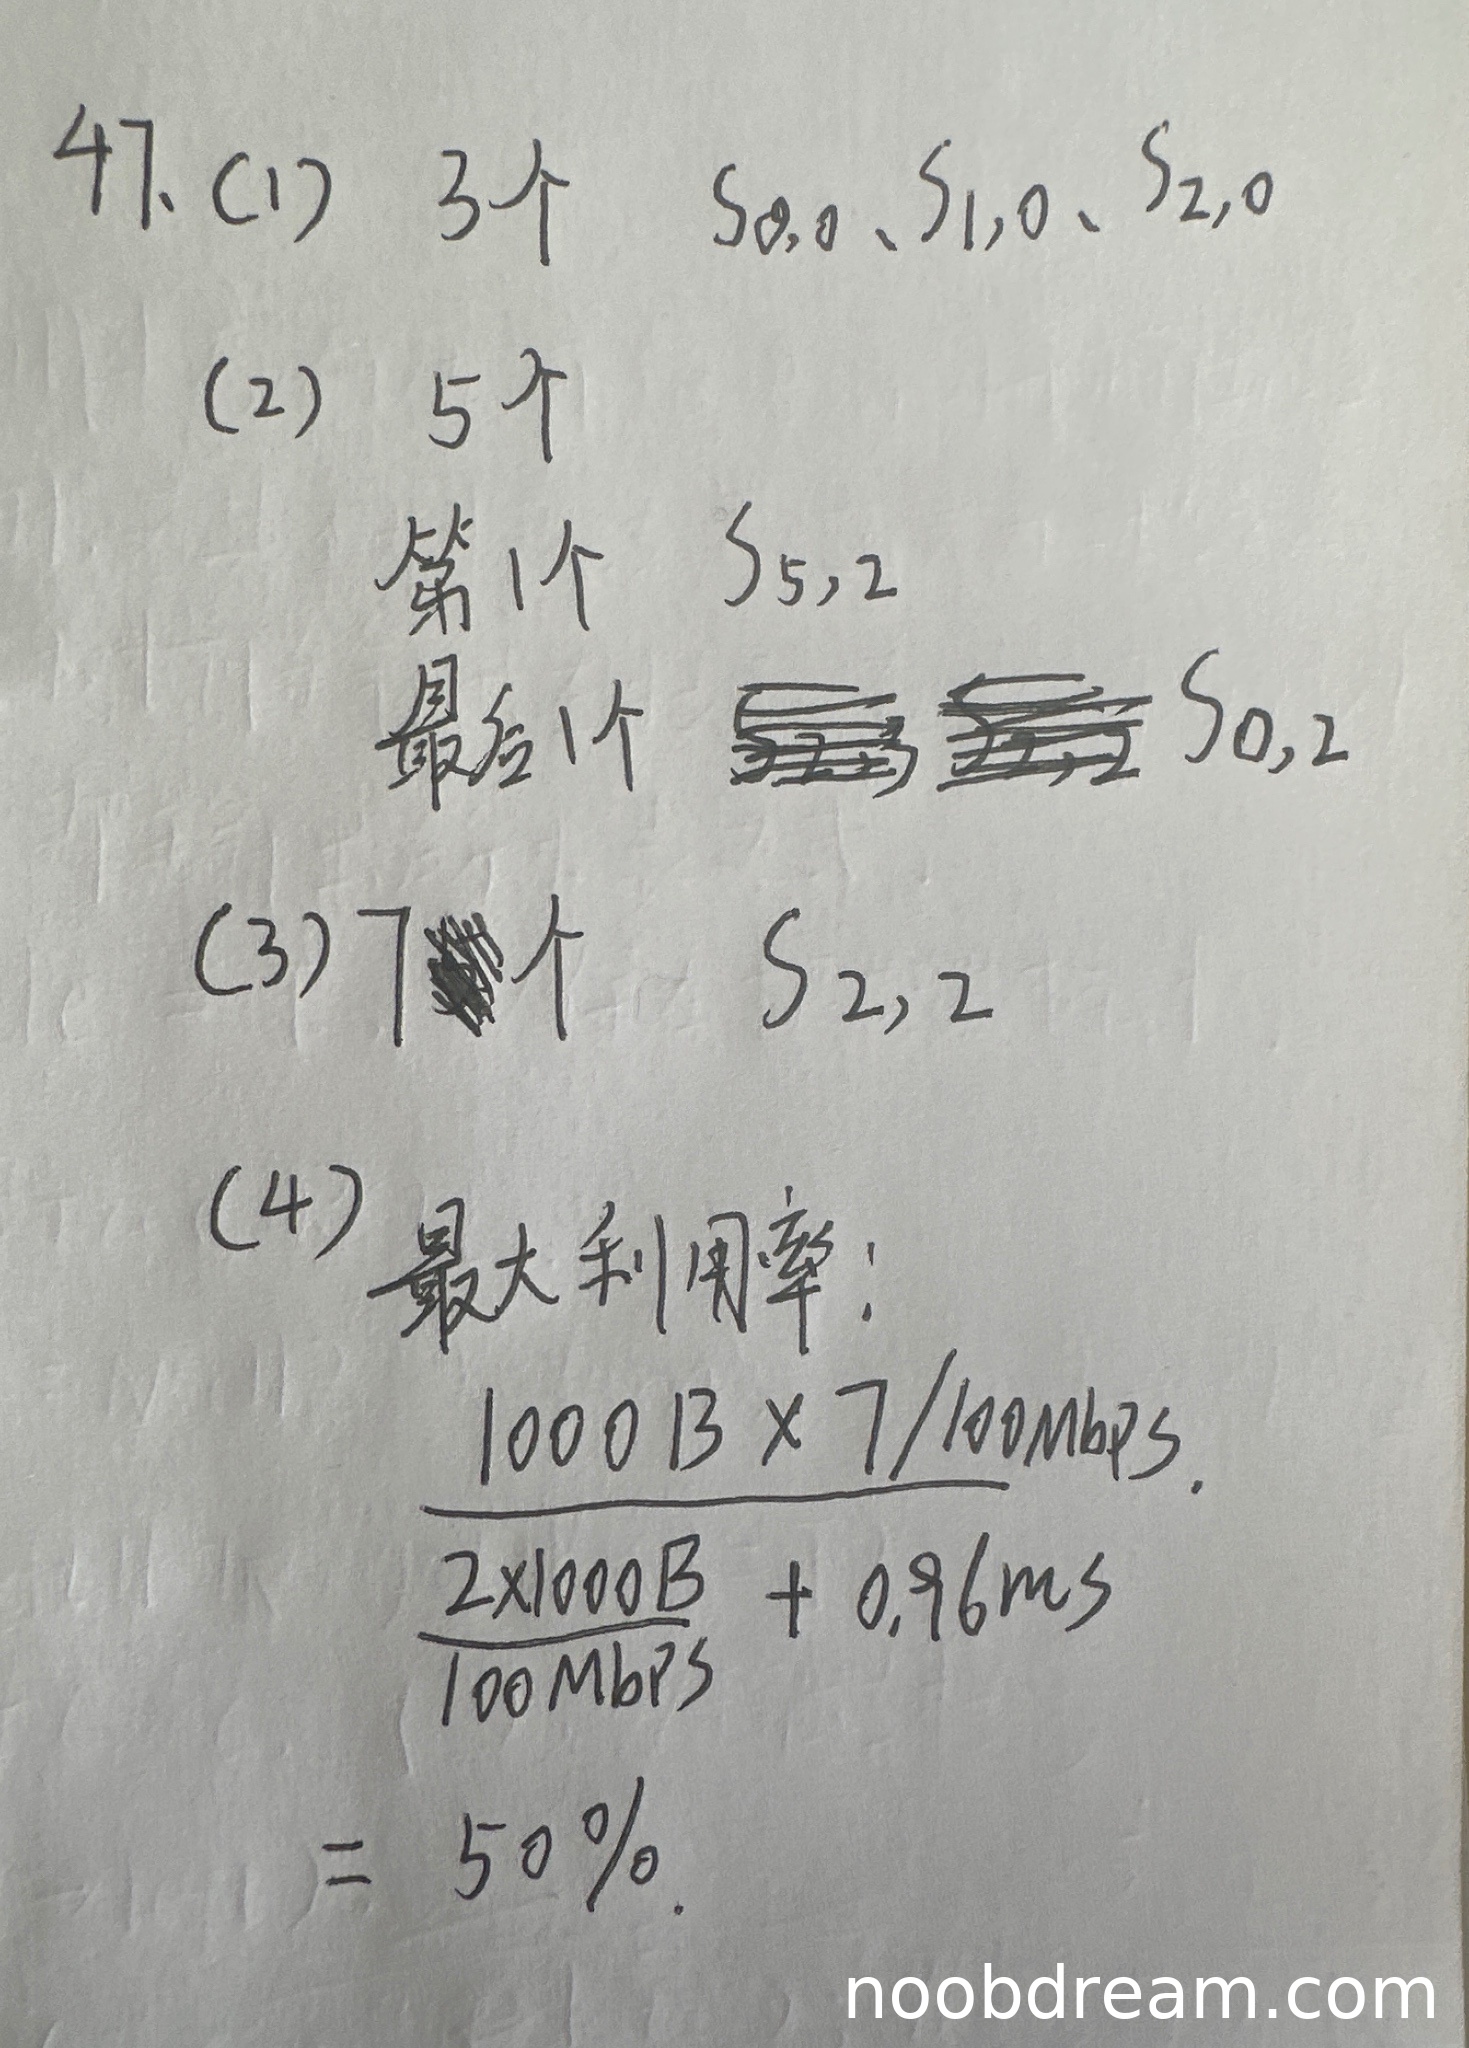 47.(1) 3个 S0,0、S1,0、S2,0
(2) 5个
第1个 S5,2
最后1个 S0,2
(3) 7个 S2,2
(4) 最大利用率:
1000B × 7/100Mbps.
2×1000B + 0.96ms
100Mbps
= 50%.
noobdream.com